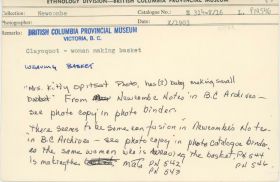 ETHNOLOGY DIVISION—BRITISH COLUMBIA PROVINCIAL MUSEUM
Collection: Newcombe
Catalogue No.:
Photographer:
Date: 8/1903
Remarks: BRITISH COLUMBIA PROVINCIAL MUSEUM
VICTORIA, B. C.
Clayoquot - woman making basket
WEAVING BASKET
"Mrs. Kitty Opitsat Photo, has (2) baby making small
basket" From Newcombe Notes in B.C. Archives -
see photo copy in photo binder.
There seems to be some confusion in Newcombe's Notes
in B.C. Archives - see photo copy in photo catalogue binder.
as the same women who is weaving the basket, PN 544
is making the mat PN 542
PN 543